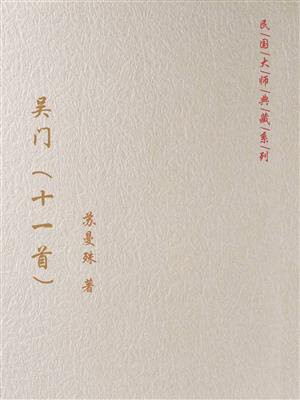 民|国|大|师|典|藏|系|列
吴门（十一首）
苏曼殊 著